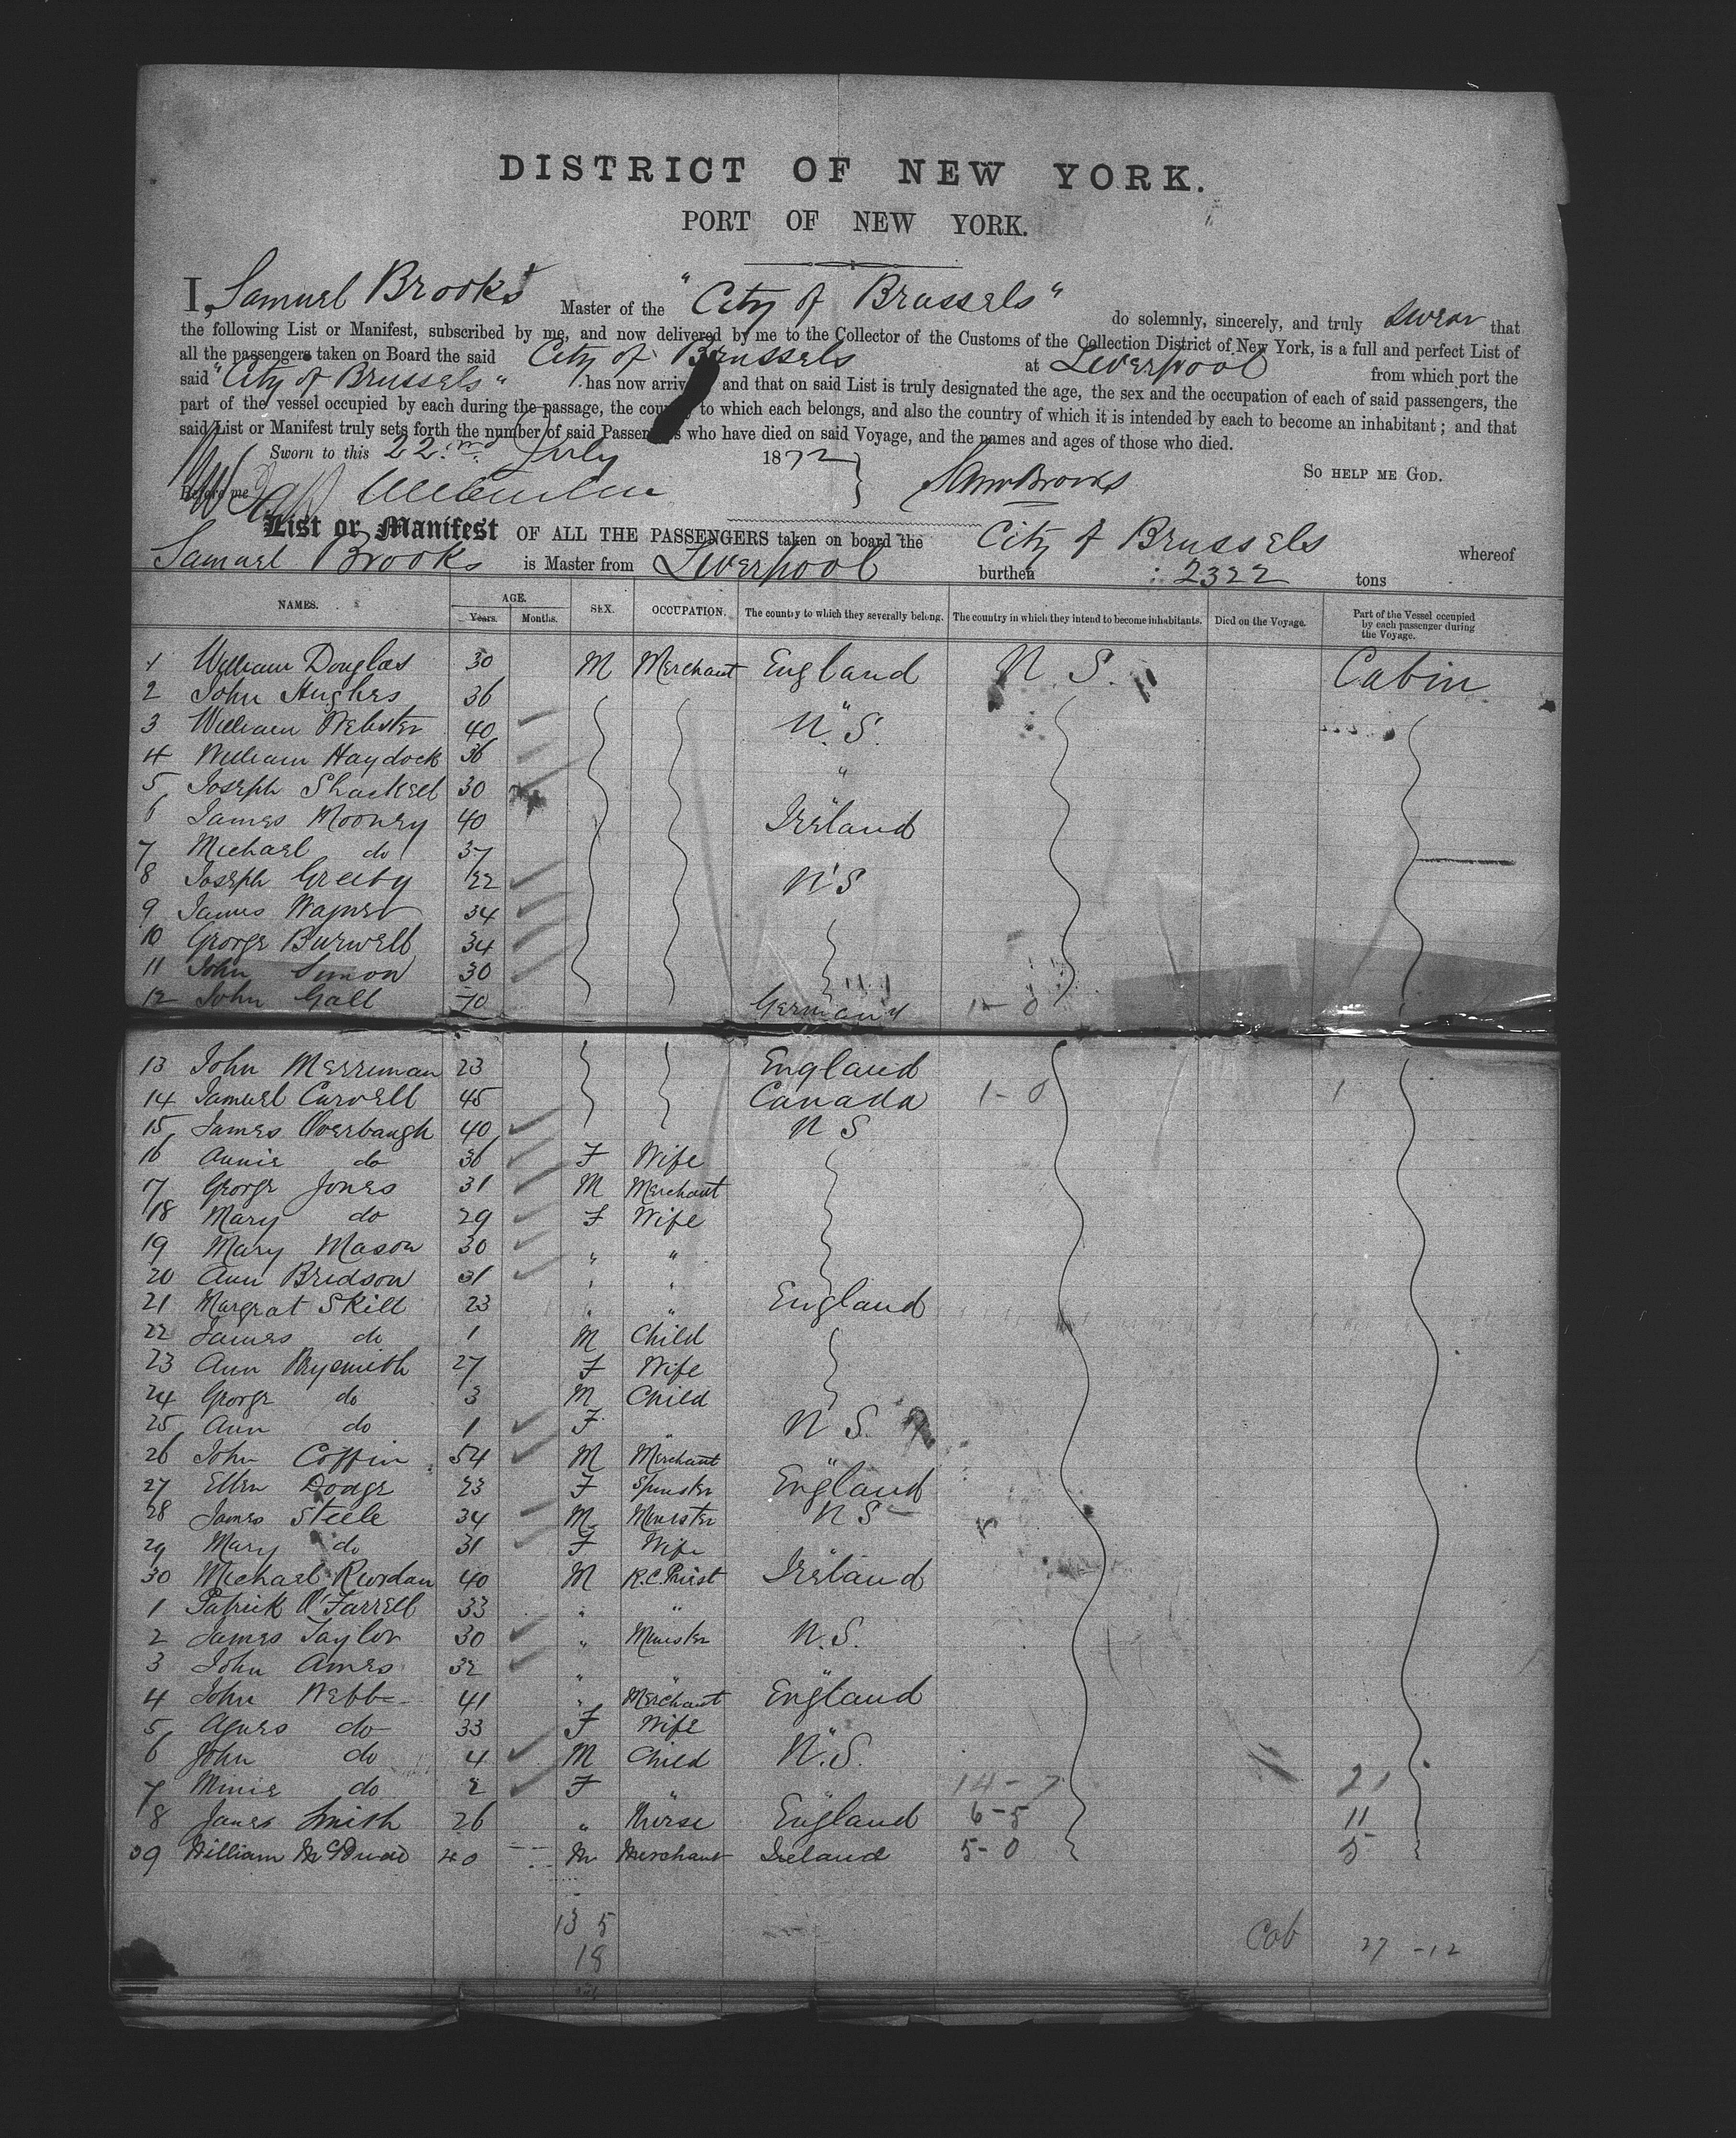 DISTRICT OF NEW YORK.
PORT OF NEW YORK.
I, Samuel Brooks Master of the "City of Brussels" do solemnly, sincerely, and truly swear that
the following List or Manifest, subscribed by me, and now delivered by me to the Collector of the Customs of the Collection District of New York, is a full and perfect List of
all the passengers taken on Board the said City of Brussels at Liverpool from which port the
said "City of Brussels" has now arriv and that on said List is truly designated the age, the sex and the occupation of each of said passengers, the
part of the vessel occupied by each during the passage, the country to which each belongs, and also the country of which it is intended by each to become an inhabitant; and that
said List or Manifest truly sets forth the number of said Passengers who have died on said Voyage, and the names and ages of those who died.
Sworn to this 22nd July 1872 Sam Brooks SO HELP ME GOD.
Before me
List or Manifest OF ALL THE PASSENGERS taken on board the City of Brussels whereof
Samuel Brooks is Master from Liverpool burthen 2322 tons
NAMES. AGE. Years. Months. SEX. OCCUPATION. The country to which they severally belong. The country in which they intend to become inhabitants. Died on the Voyage. Part of the Vessel occupied by each passenger during the Voyage.
1 William Douglas 30 M Merchant England U. S. Cabin
2 John Hughes 36 "
3 William Webster 40 U.S.
4 William Haydock 36 "
5 Joseph Shackell 30 "
6 James Mooney 40 Ireland
7 Michael do 37 "
8 Joseph Greeby 22 U S
9 James Wagner 34
10 George Burwell 34
11 John Simon 30
12 John Galt 70 Germany 1-0
13 John Merriman 23 England
14 Samuel Carvell 45 Canada 1-0 1
15 James Overbaugh 40 U S
16 Annie do 36 F Wife
17 George Jones 31 M Merchant
18 Mary do 29 F Wife
19 Mary Mason 30 " "
20 Ann Bridson 31 " "
21 Margrat Skill 23 " " England
22 James do 1 M Child
23 Ann Brysmith 27 F Wife
24 George do 3 M Child
25 Ann do 1 F " U S.
26 John Coffin 54 M Merchant "
27 Ellen Dodge 23 F Spinster England
28 James Steele 34 M Minister U S
29 Mary do 31 F Wife "
30 Michael Riordan 40 M R.C. Priest Ireland
1 Patrick O'Farrell 33 " " "
2 James Taylor 30 " Minister U.S.
3 John Ames 32 " " "
4 John Webb 41 " Merchant England
5 Agnes do 33 F Wife "
6 John do 4 M Child U.S.
7 Minie do 2 F " " 14-7 21
8 Janes Smith 26 " Nurse England 6-5 11
39 William 40 M Merchant Ireland 5-0 5
13 5
18
Cab 27-12